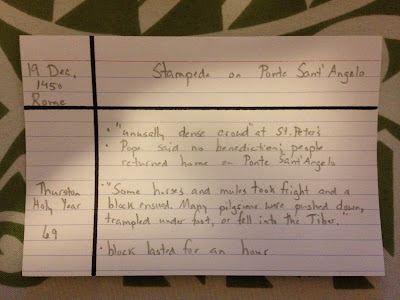 19 Dec.
1450
Rome
Stampede on Ponte Sant'Angelo
• "unusally dense crowd" at St. Peter's
• Pope said no benediction; people
returned home on Ponte Sant'Angelo
Thurston
Holy Year
69
• "Some horses and mules took fright and a
block ensued. Many pilgrims were pushed down,
trampled under foot, or fell into the Tiber."
• block lasted for an hour